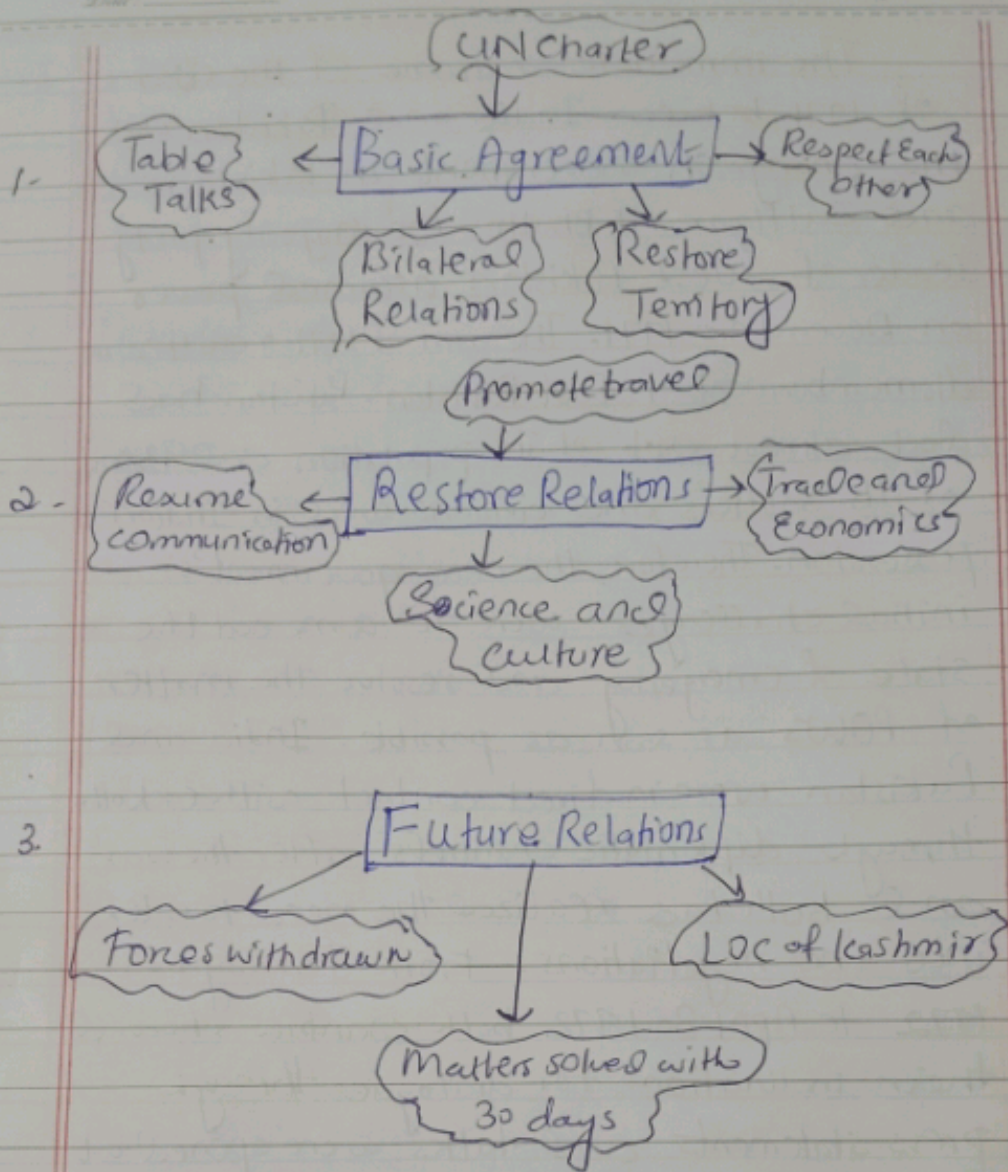 UN Charter
1-
Table
Talks
Basic Agreement
Respect Each
others
Bilateral
Relations
Restore
Territory
Promote travel
2-
Resume
communication
Restore Relations
Trade and
Economics
Science and
culture
3.
Future Relations
Forces withdrawn
LOC of Kashmir
Matters solved with
30 days